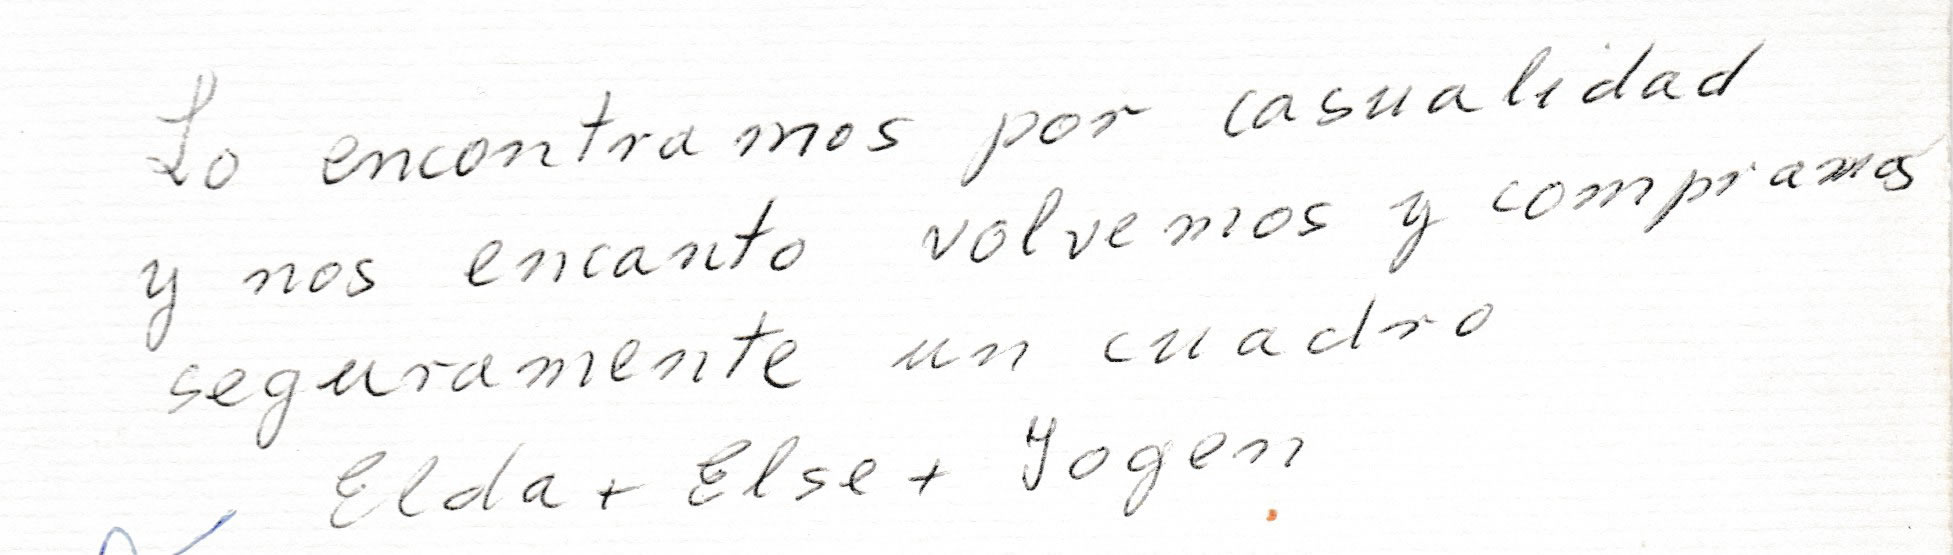 Lo encontramos por casualidad
y nos encanto volvemos y compramos
seguramente un cuadro
Elda + Else + Yogen